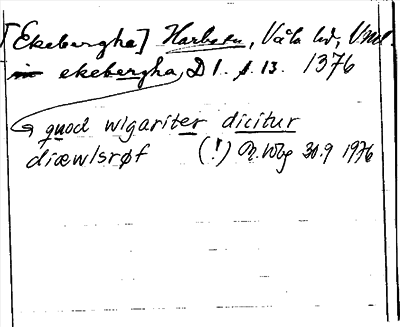 [Ekebergha] Harbo sn, Våla hd, Uppl.
in ekebergha, D 1. f. 13. 1376
quod wlgariter dicitur
diæwlsrøf (!) R. Wbg 30.9 1976